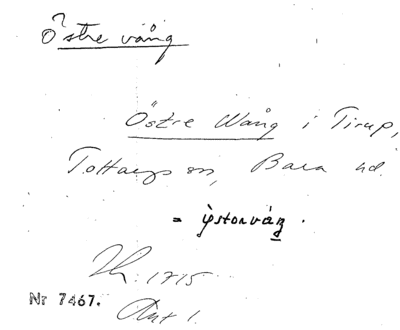 Östre vång
Östre Wång i Tirup,
Tottarps sn, Bara hd.
= ystorväg.
1715
Nr 7467. Akt 1.